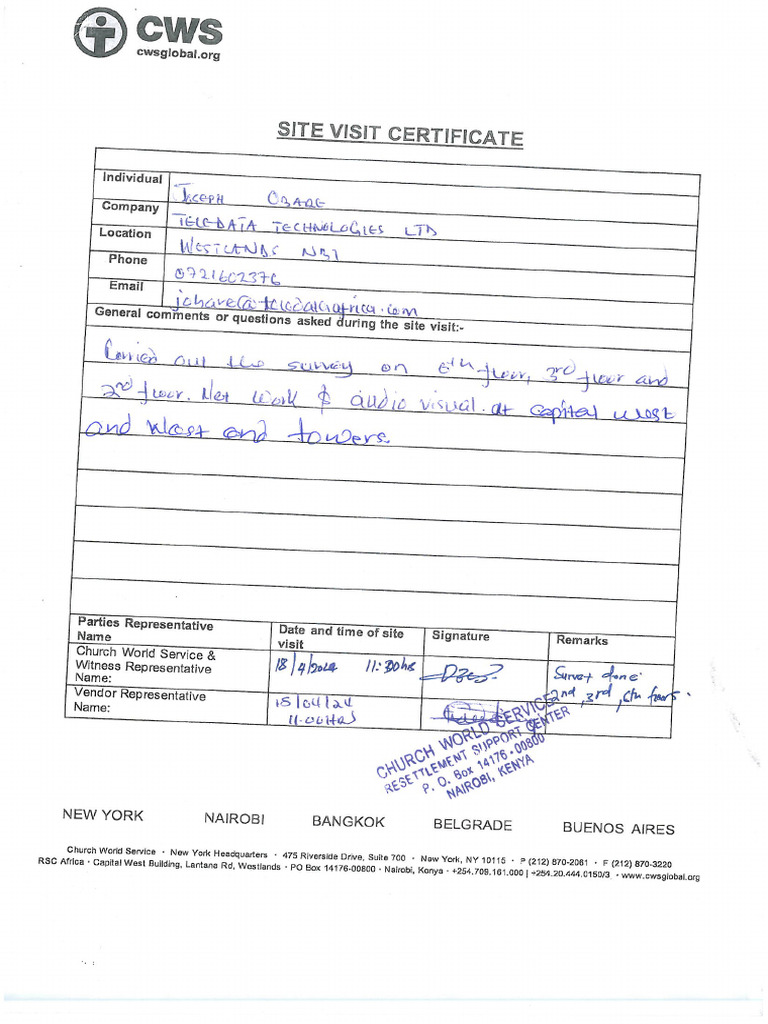 CWS
cwsglobal.org
SITE VISIT CERTIFICATE
Individual JOSEPH OBARE
Company TELEDATA TECHNOLOGIES LTD
Location WESTLANDS NBI
Phone 0721602376
Email
General comments or questions asked during the site visit:-
Carried out the survey on 6th floor, 3rd floor and
2nd floor. Net work & audio visual. at capital west
and West end towers.
Parties Representative Name Date and time of site visit Signature Remarks
Church World Service & Witness Representative Name: 18/4/2024 11:30hs Survey done: 2nd, 3rd, 6th floors.
Vendor Representative Name: 18/04/24 11.00Hrs
CHURCH WORLD SERVICE
RESETTLEMENT SUPPORT CENTER
P. O. Box 14176 - 00800
NAIROBI, KENYA
NEW YORK NAIROBI BANGKOK BELGRADE BUENOS AIRES
Church World Service · New York Headquarters · 475 Riverside Drive, Suite 700 · New York, NY 10115 · P (212) 870-2061 · F (212) 870-3220
RSC Africa · Capital West Building, Lantana Rd, Westlands · PO Box 14176-00800 · Nairobi, Kenya · +254.709.161.000 | +254.20.444.0150/3 · www.cwsglobal.org